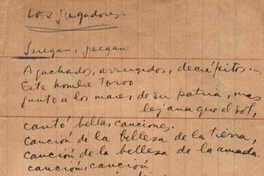 Los jugadores.
Juegan, juegan
Agachados, arrugados, decrépitos.
Este hombre torvo
junto a los mares de su patria, más
lejana que el sol,
cantó bellas canciones.
Canción de la belleza de la tierra,
canción de la belleza de la amada.
canción, canción